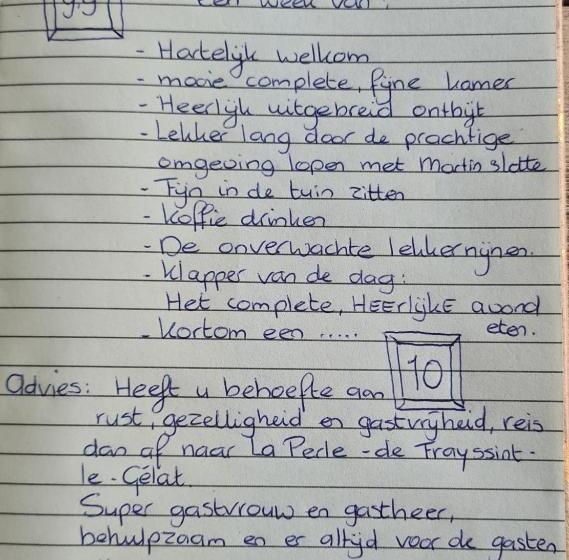 9.9 een week van :
- Hartelijk welkom
- mooie complete, fijne kamer
- Heerlijk uitgebreid ontbijt
- Lekker lang door de prachtige
omgeving lopen met Martin slatte
- Fijn in de tuin zitten
- Koffie drinken
- De onverwachte lekkernijnen.
- Klapper van de dag:
Het complete, HEErlijkE avond
eten.
- Kortom een .....
10
Advies: Heeft u behoefte aan
rust, gezelligheid en gastvrijheid, reis
dan af naar La Perle - de Frayssint -
le - Gélat.
Super gastvrouw en gastheer,
behulpzaam en er altijd voor de gasten